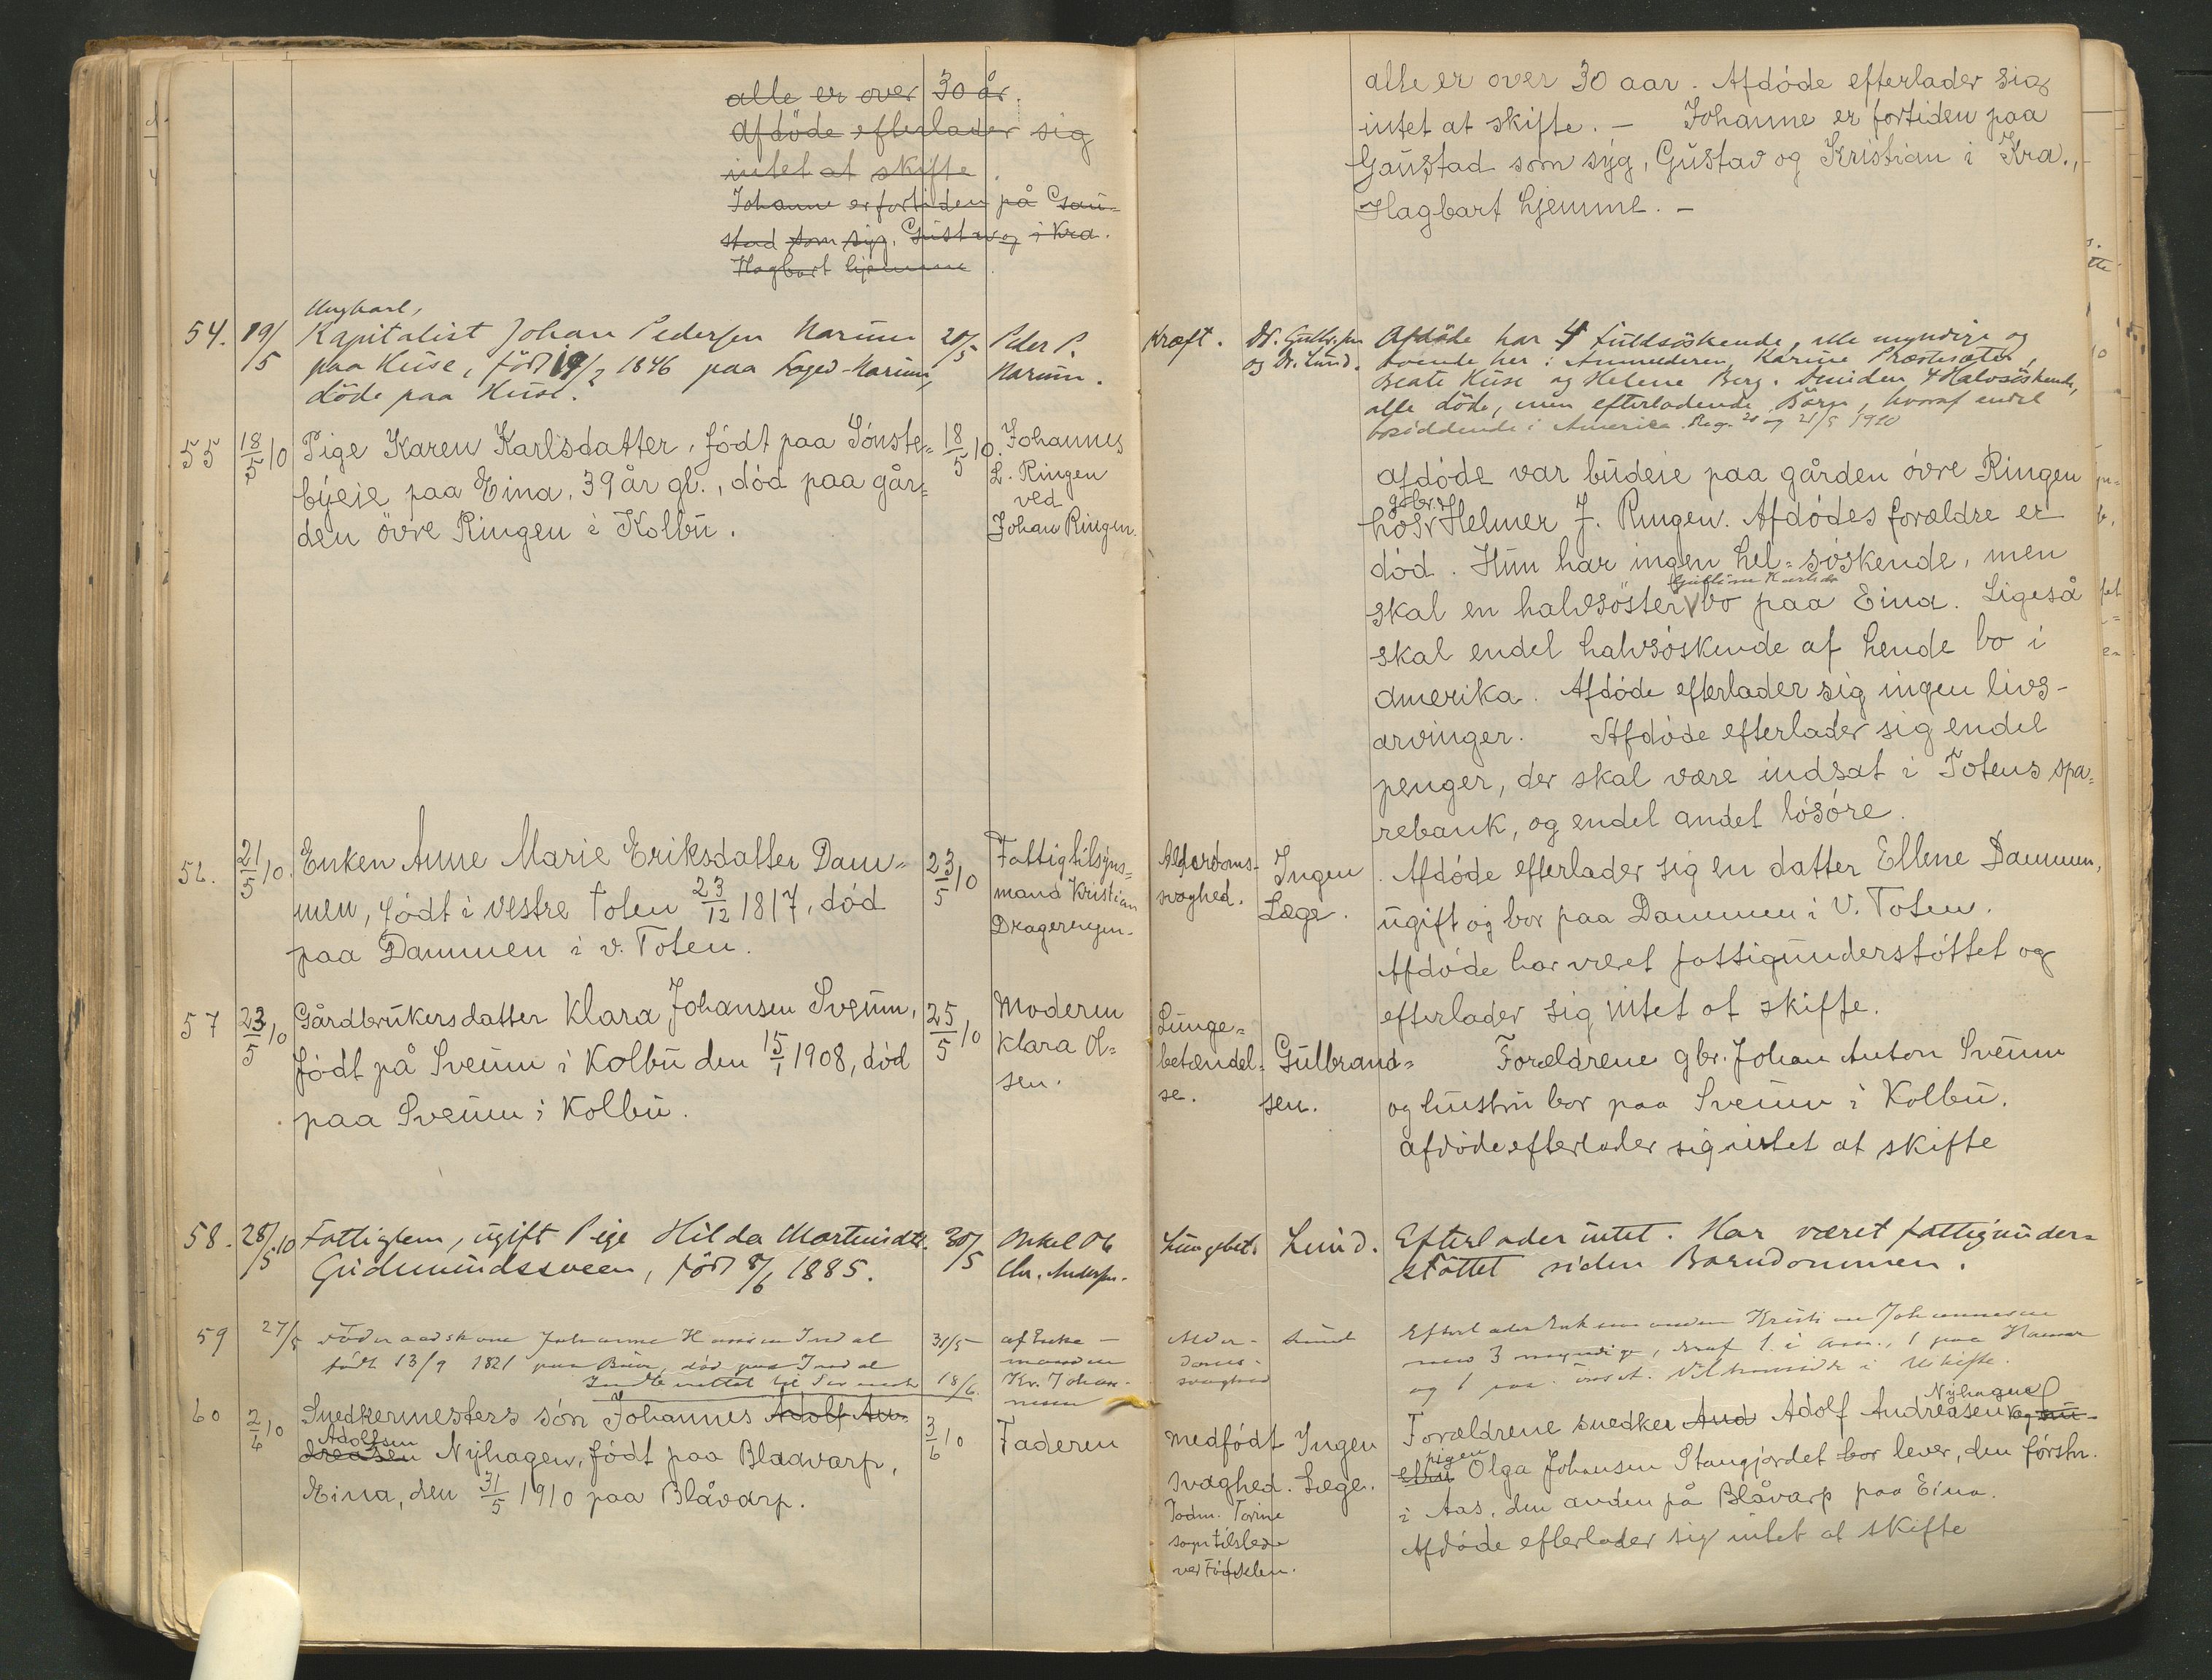 alle er over 30 år.
Afdöde efterlader sig
intet at skifte.
Johanne er fortiden på Gau-
stad som syg, Gustav og i Kra.
Hagbart hjemme
alle er over 30 aar. Afdöde efterlader sig
intet at skifte. — Johanne er fortiden paa
Gaustad som syg, Gustav og Kristian i Kra.,
Hagbart hjemme. —
54. 19/5
Ungkarl,
Kapitalist Johan Pedersen Narum
paa Huse, född 19/2 1846 paa Narum,
döde paa Huse.
20/5
Peder P.
Narum.
Kræft.
Dr. Gulbr.sen
og Dr. Lund.
Afdöde har 4 Fuldsöskende, alle myndige og
boende her i
Beate Huse og Helene Berg. Desuden 4 Halvsöskende,
alle döde, men efterladende Börn, hvoraf endel
bosiddende i Amerika. Reg. 20 og 21/5 1910
55 18/5 10
Pige Karen Karlsdatter, födt paa Sönste-
byeie paa Eina, 39 år gl., död paa går-
den övre Ringen i Kolbu.
18/5 10.
Johannes
L. Ringen
ved
Johan Ringen.
afdöde var budeie paa gården övre Ringen
gbr.
hos Helmer J. Ringen. Afdödes forældre er
död. Hun har ingen hel-söskende, men
skal en halvsöster bo paa Eina. Ligeså
skal endel halvsöskende af hende bo i
Amerika. Afdöde efterlader sig ingen livs-
arvinger. Afdöde efterlader sig endel
penger, der skal være indsat i Totens spa-
rebank, og endel andet lösöre.
56. 21/5 10.
Enken Anne Marie Eriksdatter Dam-
men, födt i vestre Toten 23/12 1817, död
paa Dammen i v. Toten.
23/5 10
Fattigtilsyns-
mand Kristian
Alderdoms-
svaghed.
Ingen
Læge.
Afdöde efterlader sig en datter Ellene Dammen,
ugift og bor paa Dammen i V. Toten.
Afdöde har været fattigunderstöttet og
efterlader sig intet at skifte.
57 23/5 10
Gårdbrukersdatter Klara Johansen Sveum,
födt på Sveum i Kolbu den 15/1 1908, död
paa Sveum i Kolbu.
25/5 10
Moderen
Klara Ol-
sen.
Lunge-
betændel-
se.
Gulbrand-
sen.
Forældrene gbr. Johan Anton Sveum
og hustru bor paa Sveum i Kolbu.
afdöde efterlader sig intet at skifte
58. 28/5 10
Fattiglem, ugift Pige Hilda Martinsdtr.
Gudmundssveen, född 8/6 1885.
30/5
Onkel Ole
Chr. Andersen.
Lungebet.
Lund.
Efterlader intet. Har været fattigunder-
stöttet siden Barndommen.
59 27/5
Föderaadskone Johanne Hansen Indal
födt 13/9 1821 paa död paa Indal
31/5
af Enke-
manden
Kr. Johan-
nesen
18/6.
Alder-
doms-
svaghed
Lund
Efterlader Enkemanden Kristian Johannesen
med 3 myndige, deraf 1 i Am., 1 paa Hamar
og 1 paa Uskifte.
60 2/6 10
Snedkermesters sön Johannes Adolf An-
Adolfsen
dreasen Nyhagen, födt paa Blaavarp,
Eina, den 31/5 1910 paa Blåvarp.
3/6 10
Faderen
medfödt
Svaghed.
Jodm. Torine
som tilstede
ved Födselen.
Ingen
Læge.
Nyhagen
Forældrene snedker And Adolf Andreasen og
pigen
Olga Johansen Stangjordet bor lever, den förstn.
i Aas, den anden på Blåvarp paa Eina.
Afdöde efterlader sig intet at skifte